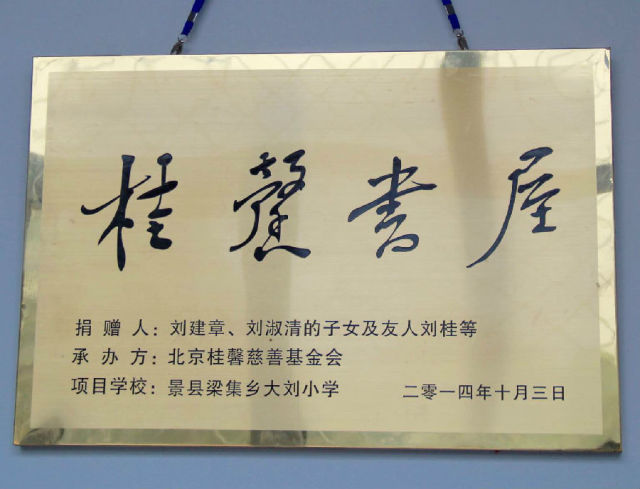 桂馨书屋
捐赠人：刘建章、刘淑清的子女及友人刘桂等
承办方：北京桂馨慈善基金会
项目学校：景县梁集乡大刘小学 二零一四年十月三日